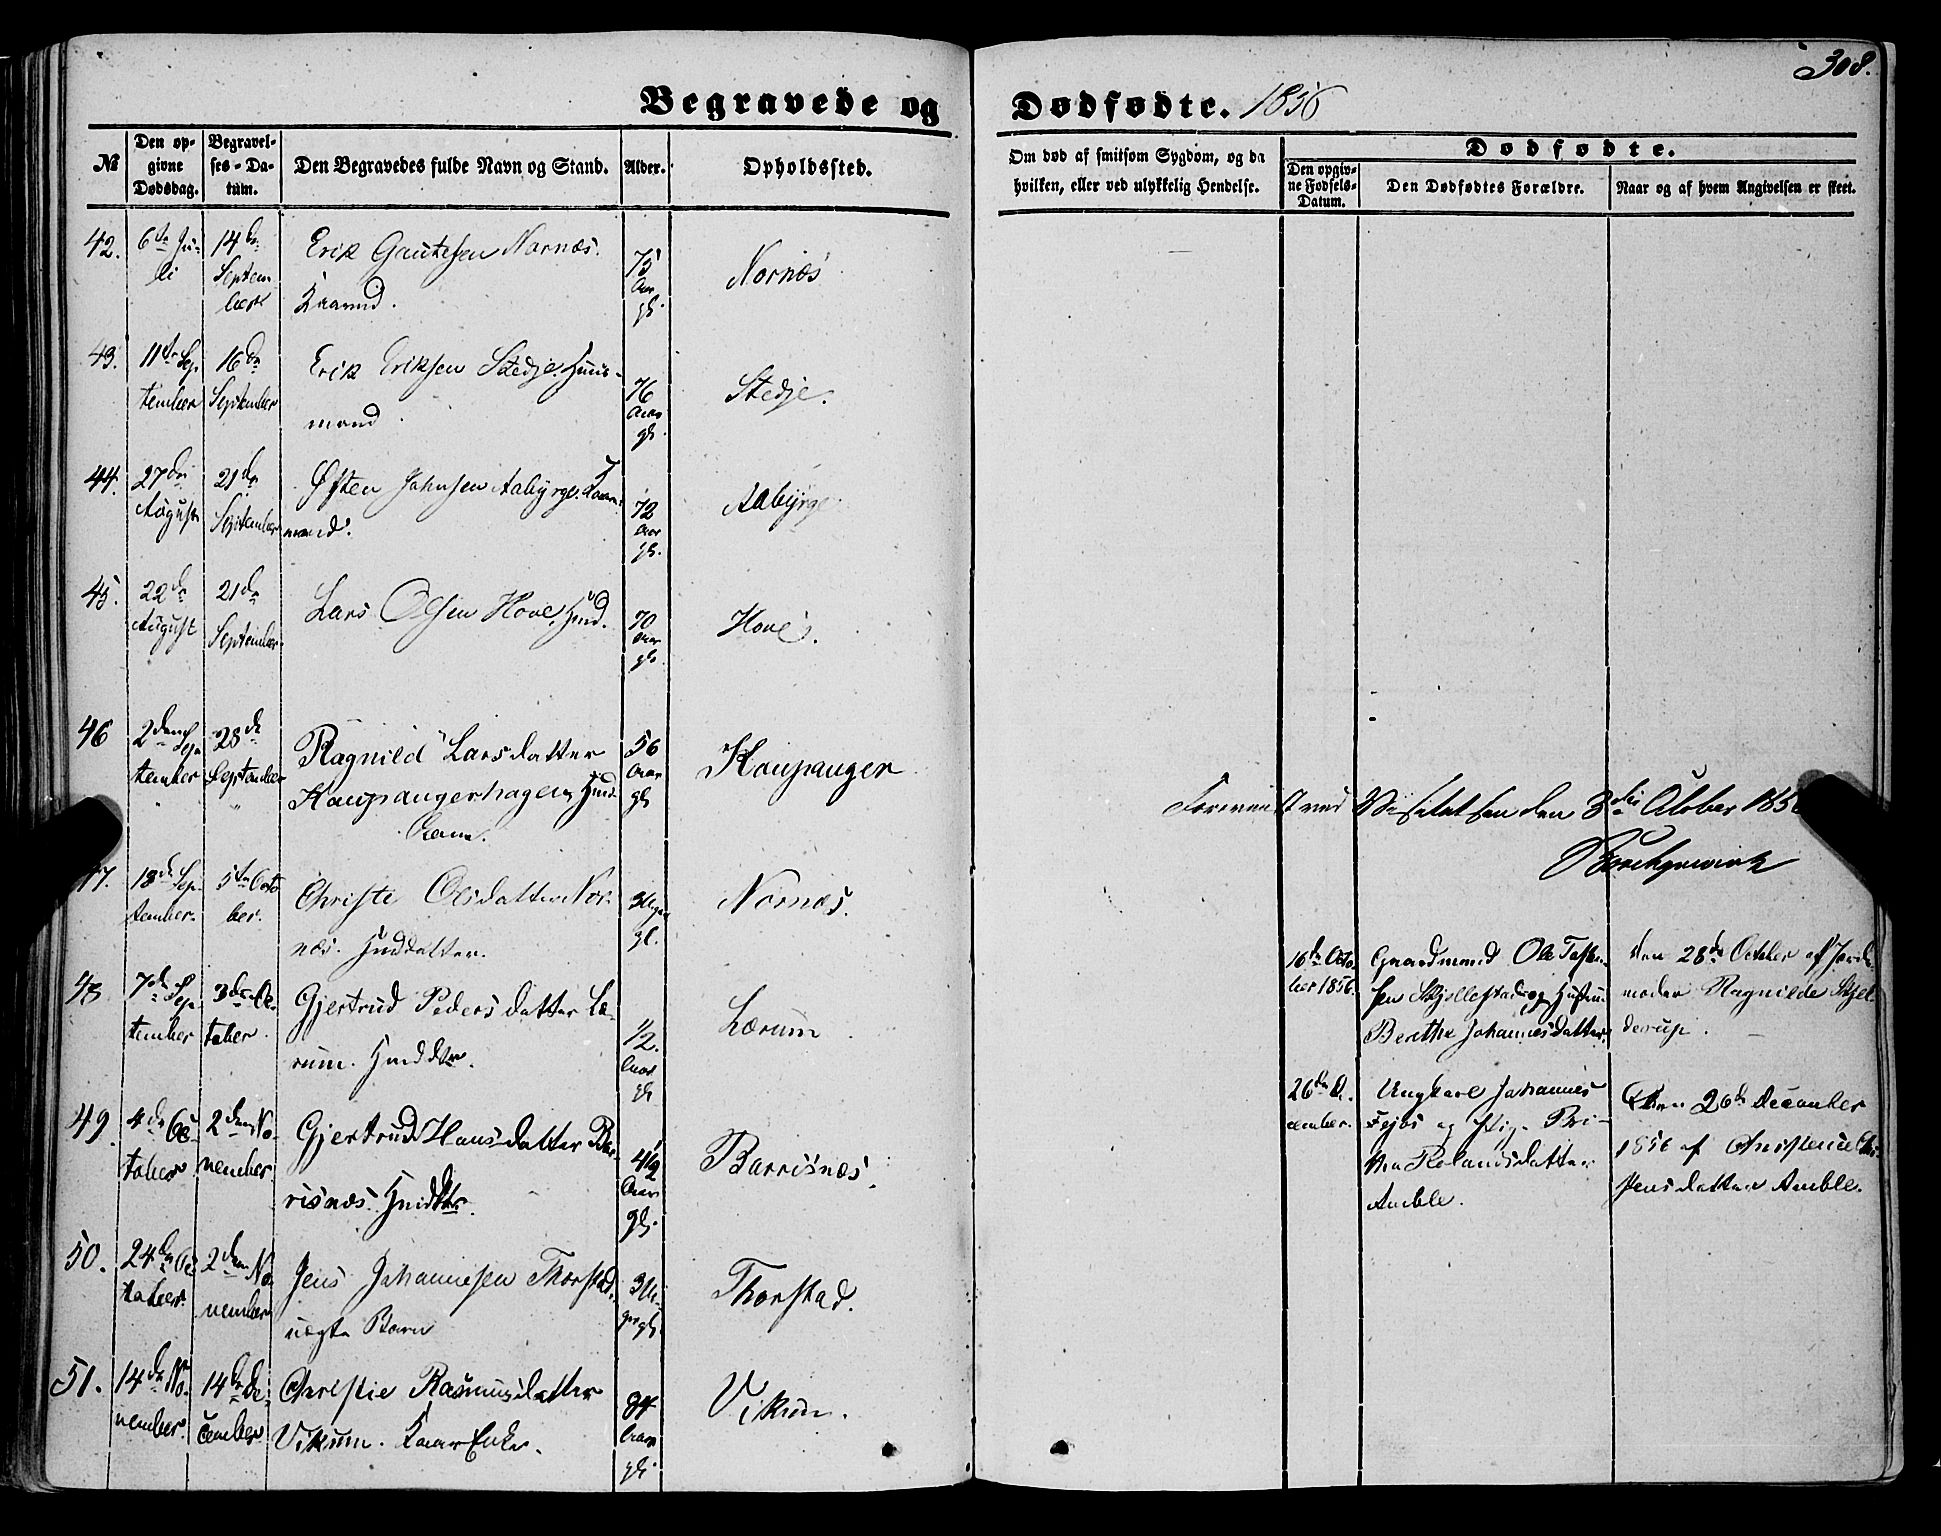 308.
Begravede og Dødfødte. 1856
№
Den opgivne Dødsdag.
Begravelses-Datum.
Den Begravedes fulde Navn og Stand.
Alder.
Opholdssted.
Om død af smitsom Sygdom, og da hvilken, eller ved ulykkelig Hendelse.
Dødfødte.
Den opgivne Fødsels-Datum.
Den Dødfødtes Forældre.
Naar og af hvem Angivelsen er skeet.
42. 6te Juli 14de September Erik Gautesen Nornæs. Kaarmd. 75 Aar gl. Nornæs
43. 11te September 16de September Erik Eriksen Stedje. Huusmand 76 Aar gl. Stedje.
44. 27de August 21de September Østen Johnsen Aabyrge. Kaarmand. 72 Aar gl. Aabyrge
45. 22de August 21de September Lars Olsen Hove. Hmd. 70 Aar gl. Hove.
46 2den September 28de September Ragnild Larsdatter Kaupangerhagen, Hmd. Kone. 56 Aar gl. Kaupanger
47. 13de September 5te October Christe Olsdatter Nornæs. Hmddatter. gl. Nornæs.
48. 7de September 3de October Gjertrud Pedersdatter Lærum. Hmddtr. 1/2 Aar gl. Lærum
49. 4de October 2den November Gjertrud Hansdatter Barrisnæs. Hmddtr. Aar gl. Barrisnæs.
50. 24de October 2den November Jens Johannesen Thorstad. uægte Barn gl. Thorstad.
51. 14de November 14de December Christie Rasmusdatter Vikum. Kaar Enke. 84 Aar gl. Vikum.
Foreviist ved Visitatsen den 3die October 1856
16de October 1856. Gaardmand Ole Skjellestad og Hustru Berithe Johannesdatter. den 28de October af Jordemoder Ragnilde Skjelderup.
26de December. Ungkarl Johannes og Pige Rolandsdatter Amble. den 26de December 1856 af Amble.